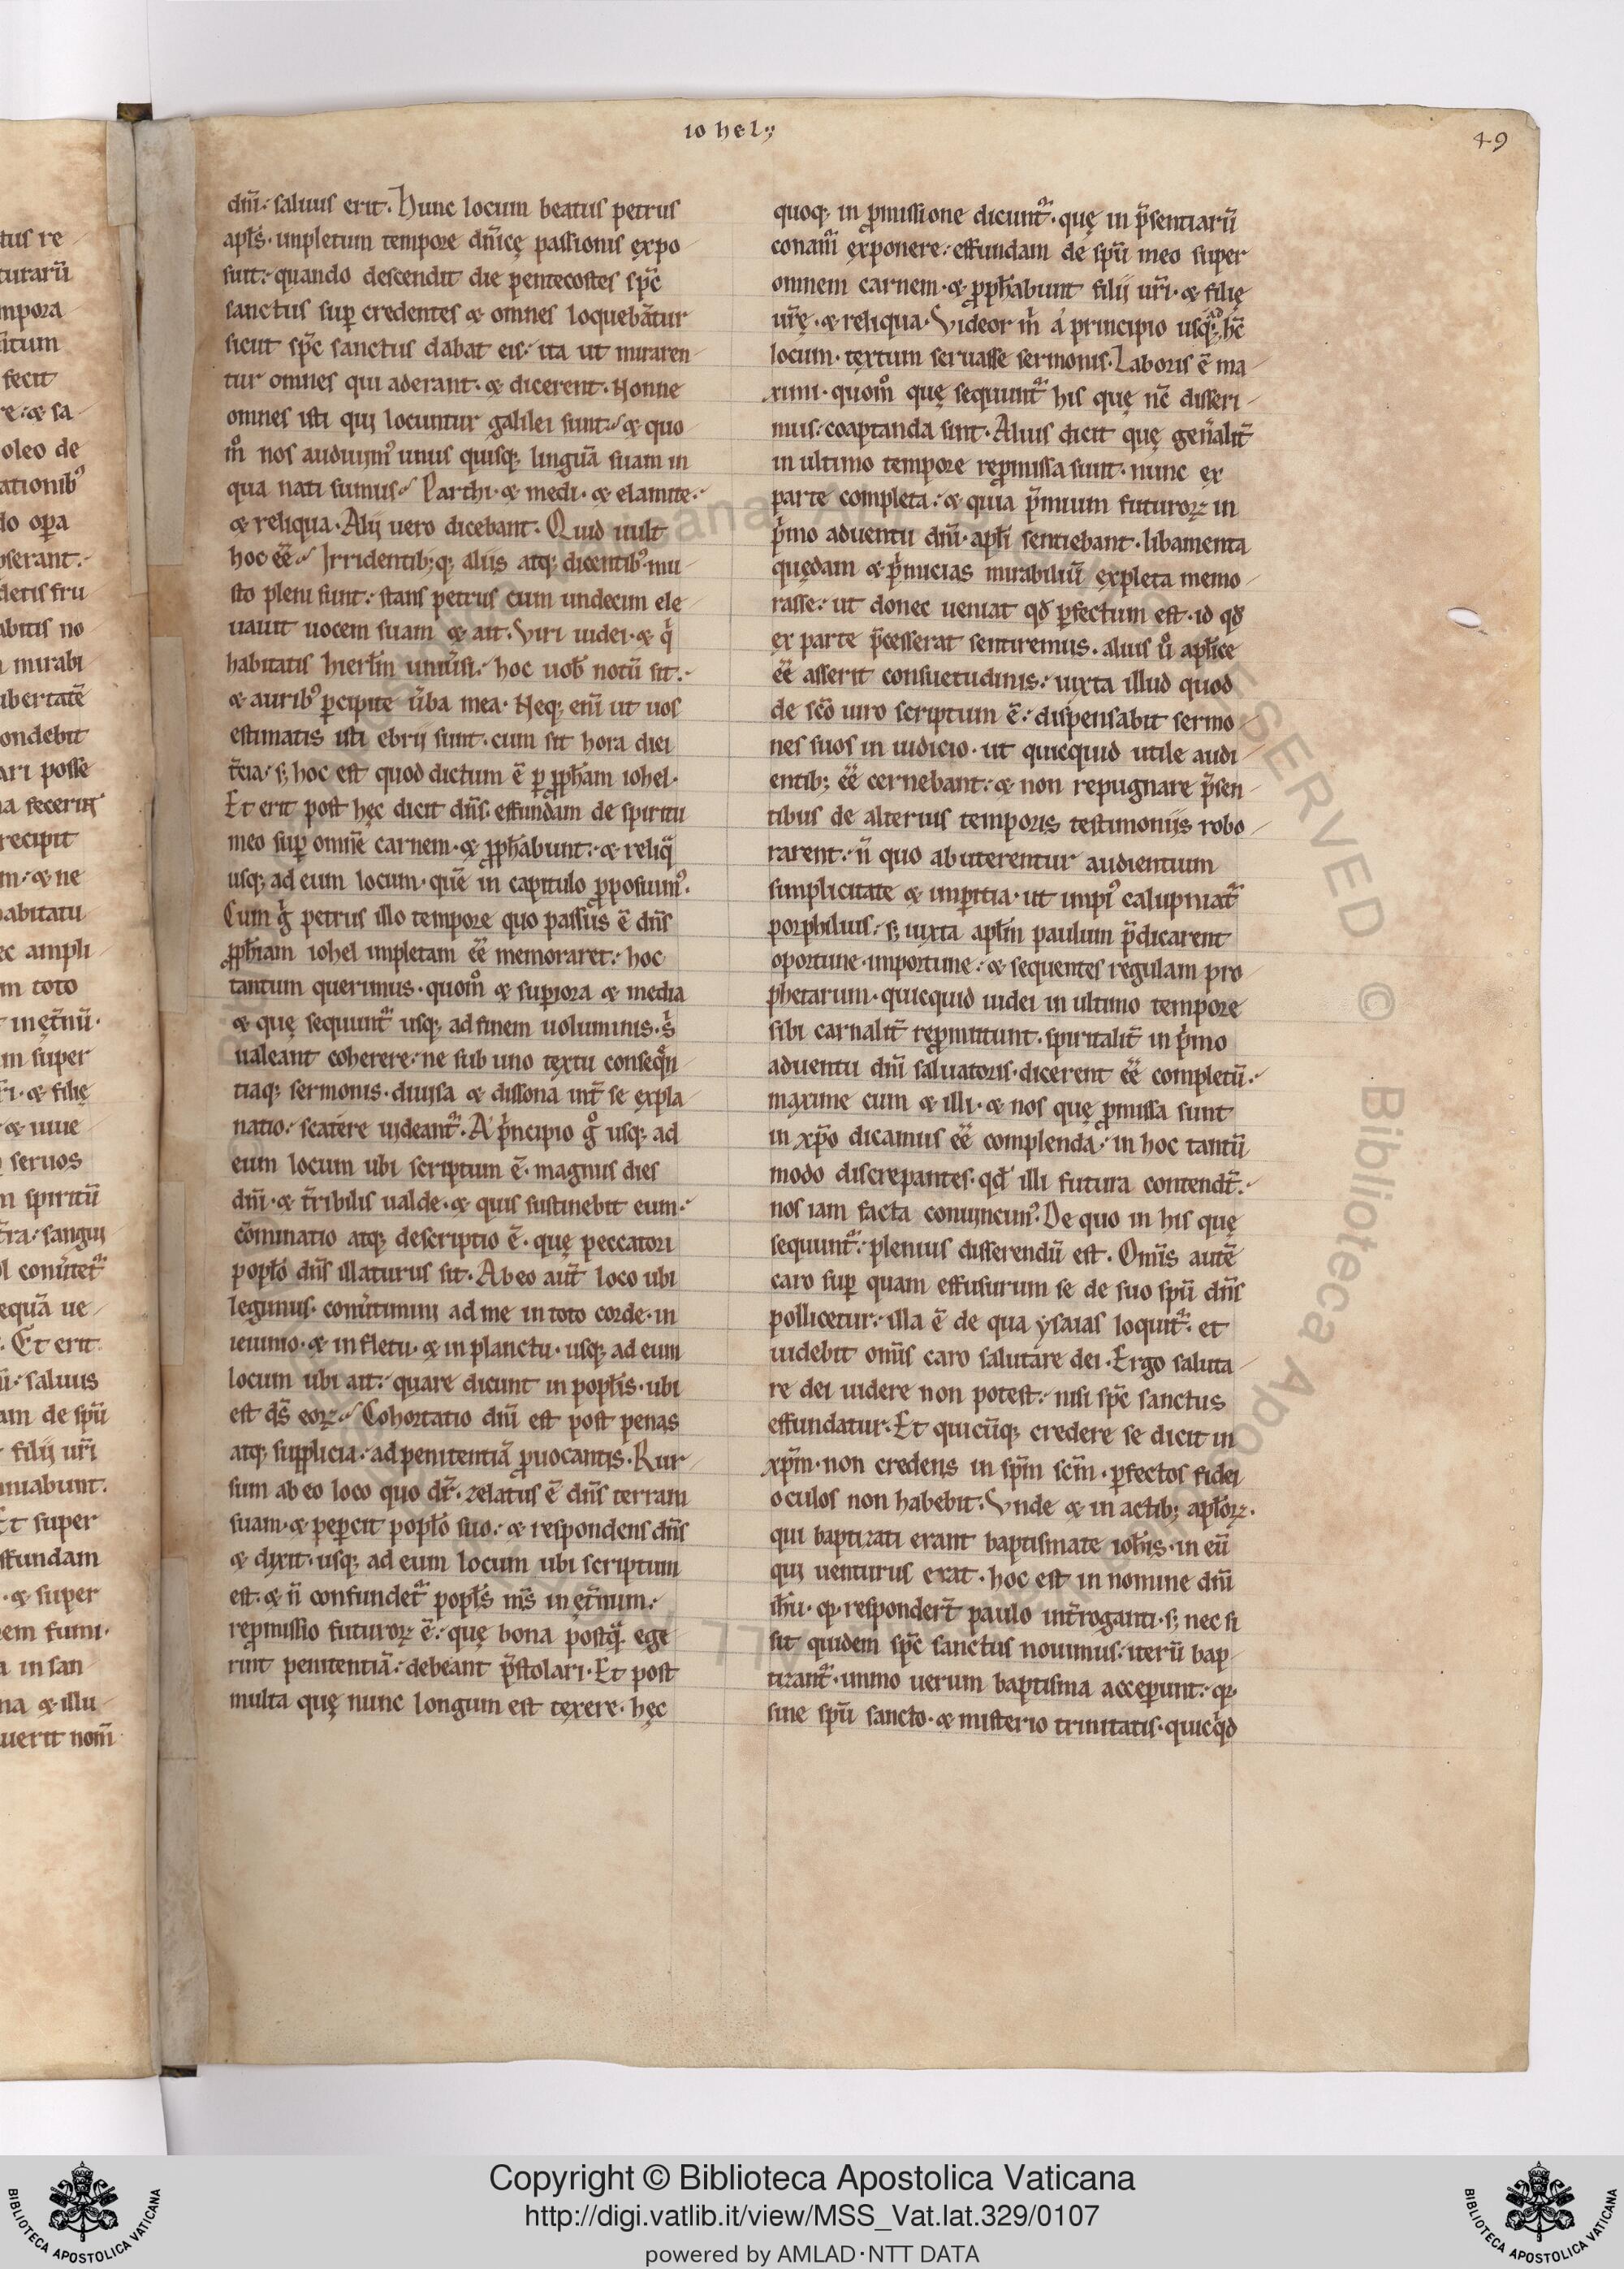 iohel.,
49
dñi: saluus erit. Hunc locum beatus petrus
apls̄. impletum tempore dn̄icę passionis expo
suit: quando descendit die pentecostes sp̄c
sanctus sup̲ credentes & omnes loquebãtur
sicut sp̄c sanctus dabat eis: ita ut miraren
tur omnes qui aderant. & dicerent. Nonne
omnes isti qui locuntur galilei sunt? & quo
m̊ nos audiuim᷒ unus quisq; linguã suam in
qua nati sumus? Parthi. & medi. & elamite:
& reliqua. Alij uero dicebant. Quid uult
hoc ee̅? Irridentib;q; aliis atq; dicentib᷒. mu
sto pleni sunt: stans petrus cum undecim ele
uauit uocem suam & ait. Viri iudei. & q̓
habitatis hierlm̄ uniũsi: hoc uob̄ notũ sit:
& aurib᷒ p̲cipite ũba mea. Neq; eni̅ ut uos
estimatis isti ebrij sunt. cum sit hora diei
t̃cia. s; hoc est quod dictum ẽ p̲ p̲ph̄am iohel.
Et erit post hęc dicit dn̄s. effundam de spiritu
meo sup̲ omnẽ carnem. & p̲ph̄abunt: & reliq̃
usq; ad eum locum. quẽ in capitulo p̲posuim᷒.
Cum g̓ petrus illo tempore quo passus ẽ dn̄s
p̲ph̄iam iohel impletam ee̅ memoraret: hoc
tantum querimus. quom̊ & sup̲iora & media
& quę sequunt᷑ usq; ad finem uoluminis. s̓
ualeant coherere: ne sub uno textu conseq̃n
tiaq; sermonis. diuisa & dissona int̃ se expla
natio: scatere uideant᷑. A p̓ncipio g̊ usq; ad
eum locum ubi scriptum ẽ. magnus dies
dñi. & t̃ribilis ualde. & quis sustinebit eum:
cõminatio atq; descriptio ẽ. quę peccatori
poplo̅ dn̄s illaturus sit. Ab eo aut̃ loco ubi
legimus. conũtimini ad me in toto corde. in
ieiunio. & in fletu. & in planctu. usq; ad eum
locum ubi ait: quare dicunt in popl̄is. ubi
est ds̄ eoꝝ? Cohortatio dñi est post penas
atq; supplicia: ad penitentiã p̲uocantis. Rur
sum ab eo loco quo dr̃. zelatus ẽ dn̄s terram
suam. & pep̲cit poplo̅ suo: & respondens dn̄s
& dixit. usq; ad eum locum ubi scriptum
est. & n̄ confundet᷑ popls̄ ms̄ in ęt̃num:
rep̲missio futuroꝝ ẽ: quę bona postq̃ ege
rint penitentiã: debeant p̃stolari. Et post
multa quę nunc longum est texere. hęc
quoq; in p̲missione dicunt᷑. quę in p̃sentiarũ
conam᷑ exponere: effundam de spū meo super
omnem carnem. & p̲ph̄abunt filij ur̄i. & filię
ur̄ę. & reliqua. Videor m̓ a principio usq; ad hc̄
locum. textum seruasse sermonis. Laboris ẽ ma
ximi. quom̊ quę sequunt᷑ his quę nc̄ disseri
mus: coaptanda sint. Alius dicit quę gen̄alit̃
in ultimo tempore rep̲missa sunt. nunc ex
parte completa: & quia p̃mium futuroꝝ in
p̓mo aduentu dñi. apl̄i sentiebant. libamenta
quędam & p̓micias mirabiliũ expleta memo
rasse: ut donec ueniat qđ p̲fectum est. id qđ
ex parte p̃cesserat sentiremus. alius ũ apl̄ice
ee̅ asserit consuetudinis: iuxta illud quod
de sc̄o uiro scriptum ẽ: dispensabit sermo
nes suos in iudicio. ut quicquid utile audi
entib; ee̅ cernebant: & non repugnare p̃sen
tibus de alterius temporis testimonijs robo
rarent: n̄ quo abuterentur audientium
simplicitate & imp̲itia. ut impi᷒ calupniat᷑
porphilius: s; iuxta apl̄m paulum p̃dicarent
oportune. importune: & sequentes regulam pro
phetarum. quicquid iudei in ultimo tempore
sibi carnalit̃ rep̲mittunt. spiritalit̃ in p̓mo
aduentu dñi saluatoris. dicerent ee̅ completũ:
maxime cum & illi. & nos quę p̲missa sunt
in xp̄o dicamus ee̅ complenda: in hoc tantũ
modo discrepantes. qđ illi futura contendt̃:
nos iam facta conuincim᷒. De quo in his quę
sequunt᷑: plenius disserendũ est. Omīs autẽ
caro sup̲ quam effusurum se de suo spū dn̄s
pollicetur: illa ẽ de qua ysaias loquit᷑: et
uidebit omīs caro salutare dei. Ergo saluta
re dei uidere non potest: nisi sp̄c sanctus
effundatur. Et quicũq; credere se dicit in
xp̄m. non credens in sp̄m sc̄m. p̲fectos fidei
oculos non habebit. Vnde & in actib; apl̄oꝝ.
qui baptizati erant baptismate ioh̄is. in eũ
qui uenturus erat. hoc est in nomine dñi
ih̄u. q̲. respondert̃ paulo int̃roganti. s; nec si
sit quidem sp̄c sanctus nouimus: iterũ bap
tizant᷑. immo uerum baptisma accep̲unt: q̲.
sine spū sancto. & misterio trinitatis. quicq̓d
tus re
turarũ
mpora
fecit
re: & sa
oleo de
ationib᷒
do op̲a
detis fru
abitis no
mirabi
ibertatẽ
ondebit
ari posse
recipit
m: & ne
habitatu
ec ampli
m toto
in ęt̃nũ.
m super
ri. & filię
& iuue
seruos
m spiritũ
equã ue
Et erit
saluus
am de spū
filij ur̄i
Et super
effundam
& super
em fumi.
in san
na & illu
uerit nom̄
Copyright © Biblioteca Apostolica Vaticana
http://digi.vatlib.it/view/MSS_Vat.lat.329/0107
powered by AMLAD·NTT DATA
BIBLIOTECA APOSTOLICA VATICANA
BIBLIOTECA APOSTOLICA VATICANA